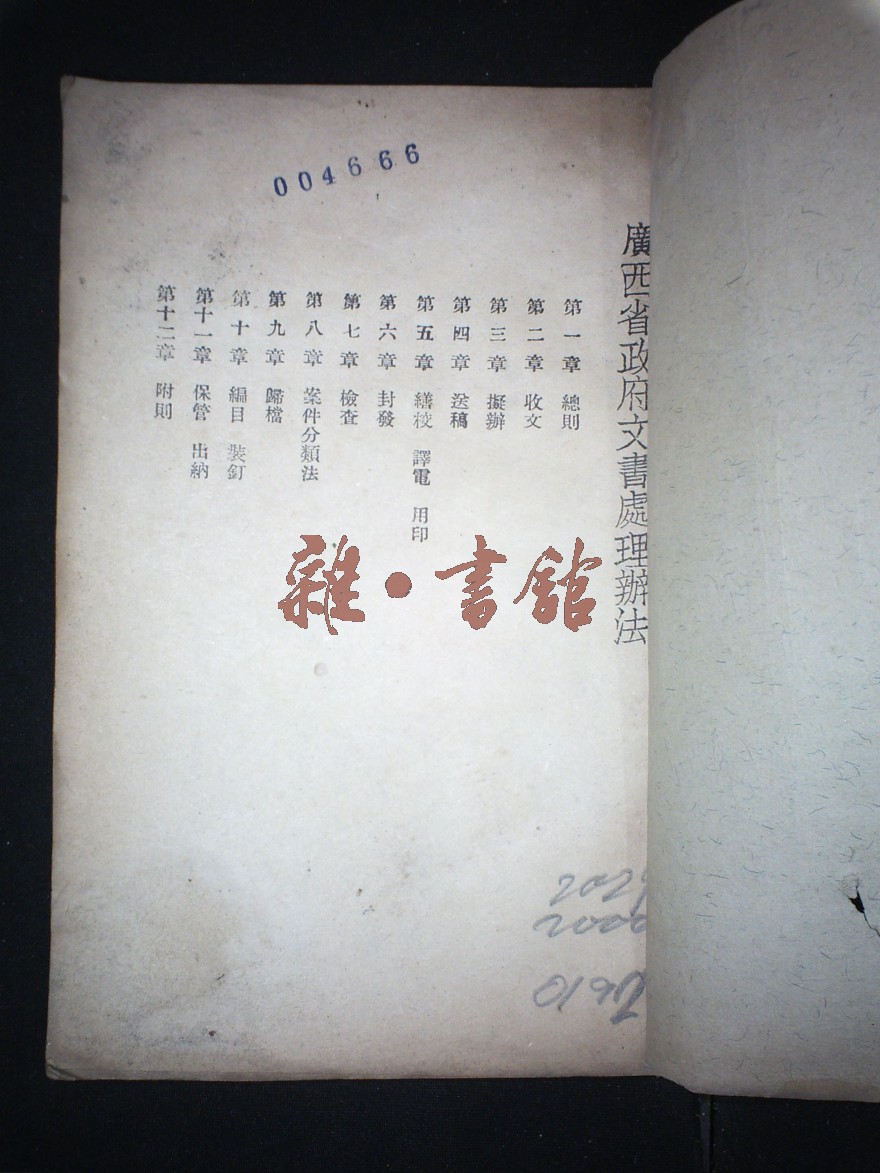 004666
廣西省政府文書處理辦法
第一章 總則
第二章 收文
第三章 擬辦
第四章 送稿
第五章 繕校 譯電 用印
第六章 封發
第七章 檢查
第八章 案件分類法
第九章 歸檔
第十章 編目 裝釘
第十一章 保管 出納
第十二章 附則
雜•書館